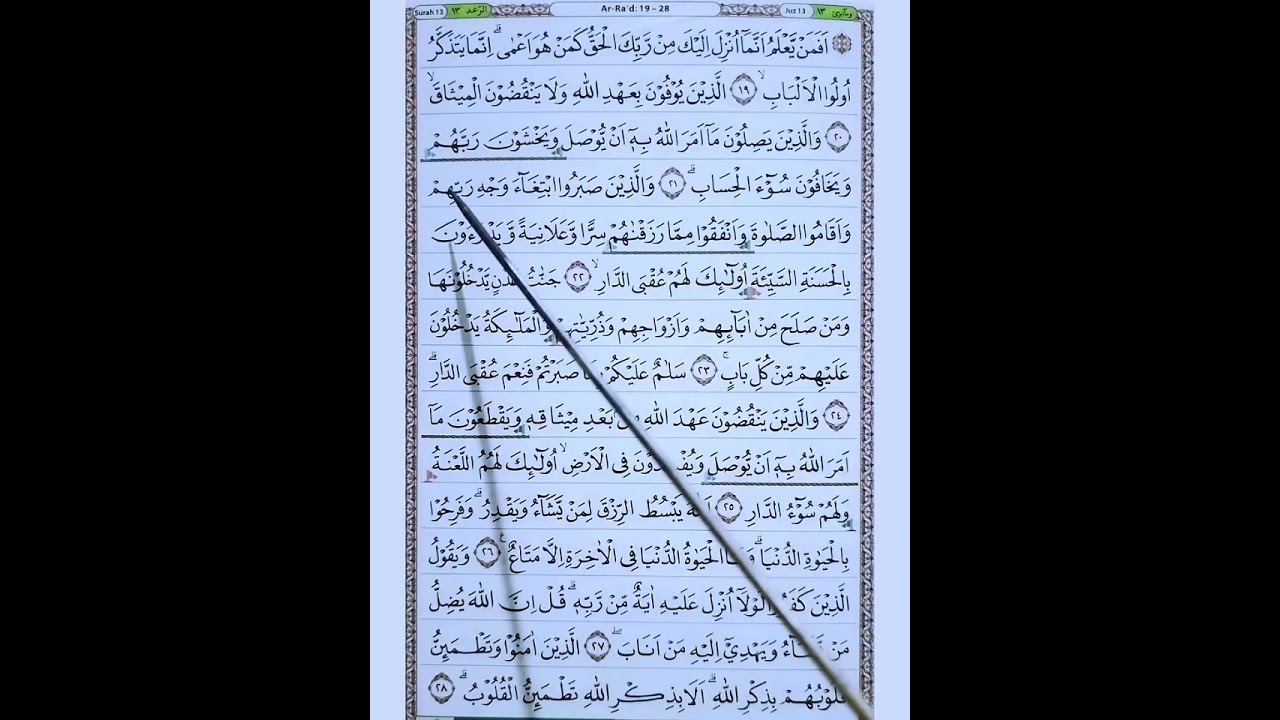 Surah 13 الرّعد ١٣ Ar-Ra'd: 19 – 28 Juz 13 وماأبرئ ١٣
اَفَمَنْ يَّعْلَمُ اَنَّمَآ اُنْزِلَ اِلَيْكَ مِنْ رَّبِّكَ الْحَقُّ كَمَنْ هُوَ اَعْمٰىۗ اِنَّمَا يَتَذَكَّرُ
اُولُوا الْاَلْبَابِۙ ١٩ الَّذِيْنَ يُوْفُوْنَ بِعَهْدِ اللّٰهِ وَلَا يَنْقُضُوْنَ الْمِيْثَاقَۙ
٢٠ وَالَّذِيْنَ يَصِلُوْنَ مَآ اَمَرَ اللّٰهُ بِهٖٓ اَنْ يُّوْصَلَ وَيَخْشَوْنَ رَبَّهُمْ
وَيَخَافُوْنَ سُوْۤءَ الْحِسَابِۗ ٢١ وَالَّذِيْنَ صَبَرُوا ابْتِغَاۤءَ وَجْهِ رَبِّهِمْ
وَاَقَامُوا الصَّلٰوةَ وَاَنْفَقُوْا مِمَّا رَزَقْنٰهُمْ سِرًّا وَّعَلَانِيَةً وَّيَدْرَءُوْنَ
بِالْحَسَنَةِ السَّيِّئَةَ اُولٰۤىِٕكَ لَهُمْ عُقْبَى الدَّارِۙ ٢٢ جَنّٰتُ عَدْنٍ يَّدْخُلُوْنَهَا
وَمَنْ صَلَحَ مِنْ اٰبَاۤىِٕهِمْ وَاَزْوَاجِهِمْ وَذُرِّيّٰتِهِمْ وَالْمَلٰۤىِٕكَةُ يَدْخُلُوْنَ
عَلَيْهِمْ مِّنْ كُلِّ بَابٍۚ ٢٣ سَلٰمٌ عَلَيْكُمْ بِمَا صَبَرْتُمْ فَنِعْمَ عُقْبَى الدَّارِۗ
٢٤ وَالَّذِيْنَ يَنْقُضُوْنَ عَهْدَ اللّٰهِ مِنْۢ بَعْدِ مِيْثَاقِهٖ وَيَقْطَعُوْنَ مَآ
اَمَرَ اللّٰهُ بِهٖٓ اَنْ يُّوْصَلَ وَيُفْسِدُوْنَ فِى الْاَرْضِۙ اُولٰۤىِٕكَ لَهُمُ اللَّعْنَةُ
وَلَهُمْ سُوْۤءُ الدَّارِ ٢٥ اَللّٰهُ يَبْسُطُ الرِّزْقَ لِمَنْ يَّشَاۤءُ وَيَقْدِرُۗ وَفَرِحُوْا
بِالْحَيٰوةِ الدُّنْيَاۗ وَمَا الْحَيٰوةُ الدُّنْيَا فِى الْاٰخِرَةِ اِلَّا مَتَاعٌࣖ ٢٦ وَيَقُوْلُ
الَّذِيْنَ كَفَرُوْا لَوْلَآ اُنْزِلَ عَلَيْهِ اٰيَةٌ مِّنْ رَّبِّهٖۗ قُلْ اِنَّ اللّٰهَ يُضِلُّ
مَنْ يَّشَاۤءُ وَيَهْدِيْٓ اِلَيْهِ مَنْ اَنَابَۖ ٢٧ الَّذِيْنَ اٰمَنُوْا وَتَطْمَىِٕنُّ
قُلُوْبُهُمْ بِذِكْرِ اللّٰهِۗ اَلَا بِذِكْرِ اللّٰهِ تَطْمَىِٕنُّ الْقُلُوْبُۗ ٢٨